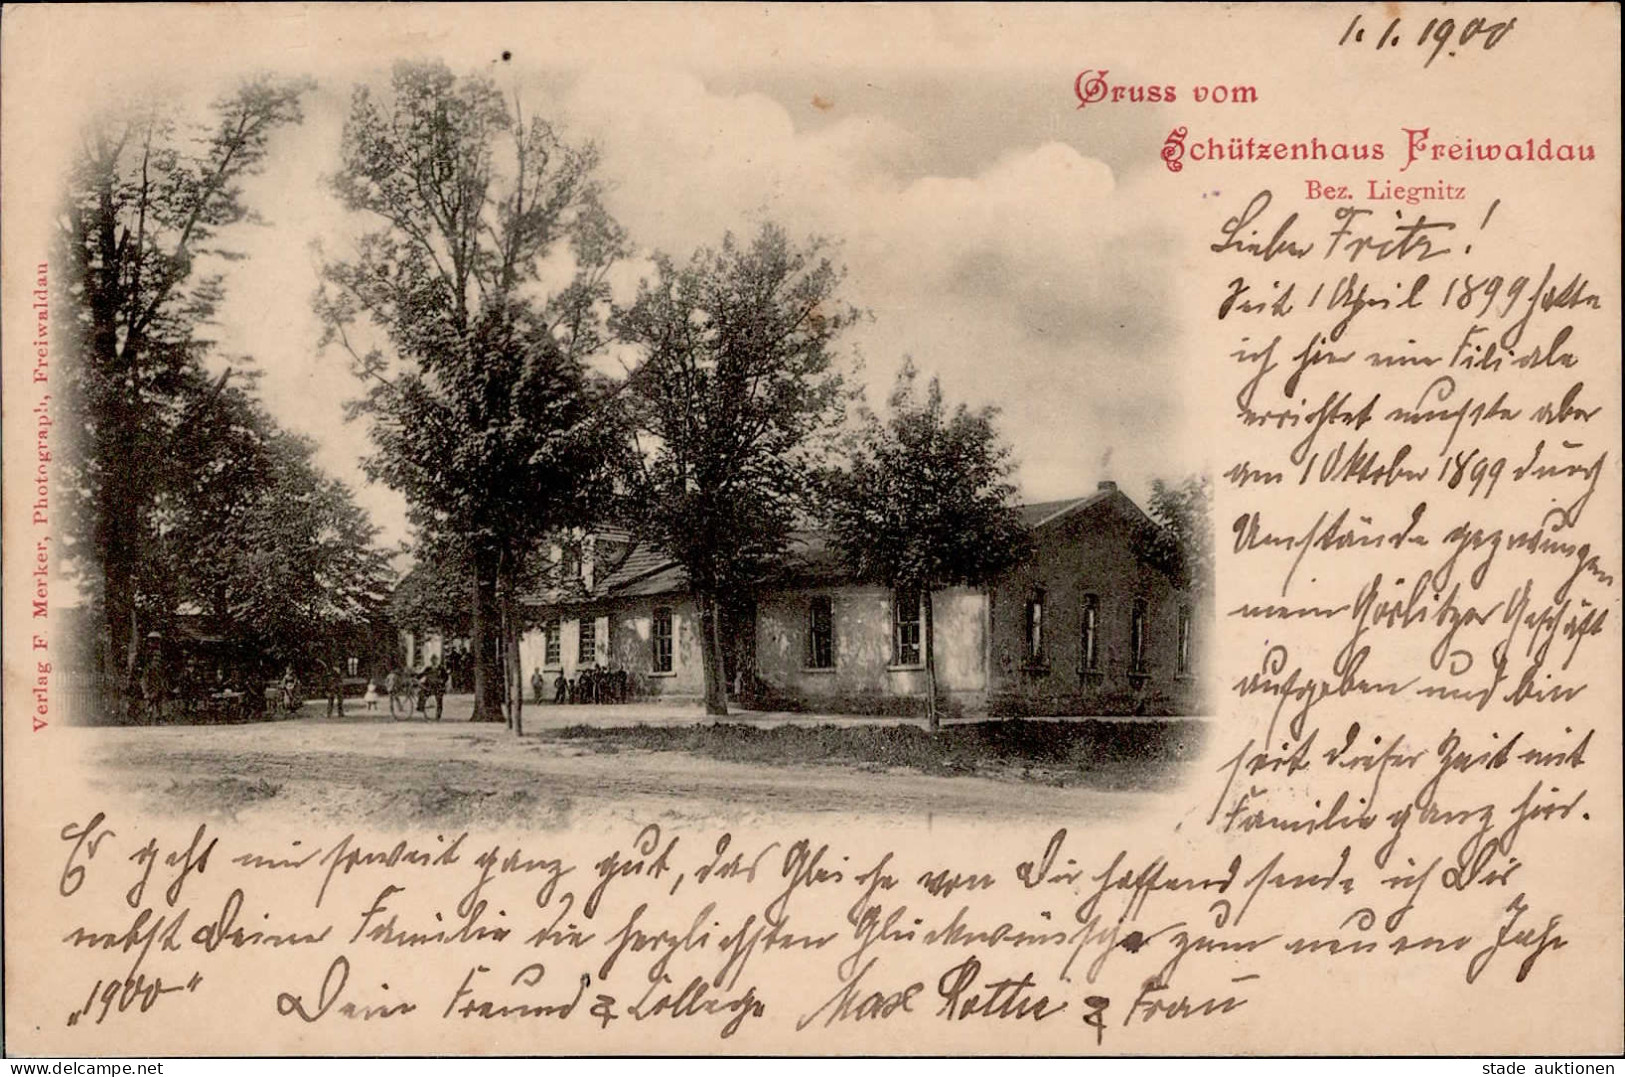 1. 1. 1900
Gruss vom
Schützenhaus Freiwaldau
Bez. Liegnitz
Lieber Fritz!
Seit 1 April 1899 hatte
ich hier eine Filiale
errichtet musste aber
am 1 Oktober 1899 durch
Umstände gezwungen
mein Görlitzer Geschäft
aufgeben und bin
seit dieser Zeit mit
Familie ganz hier.
Es geht mir soweit ganz gut, das Gleiche von Dir hoffend sende ich Dir
nebst Deiner Familie die herzlichsten Glückwünsche zum neuen Jahr
„1900“ Dein Freund & College Max Rothe & Frau
Verlag F. Merker, Photograph, Freiwaldau
stade auktionen
www.delcampe.net